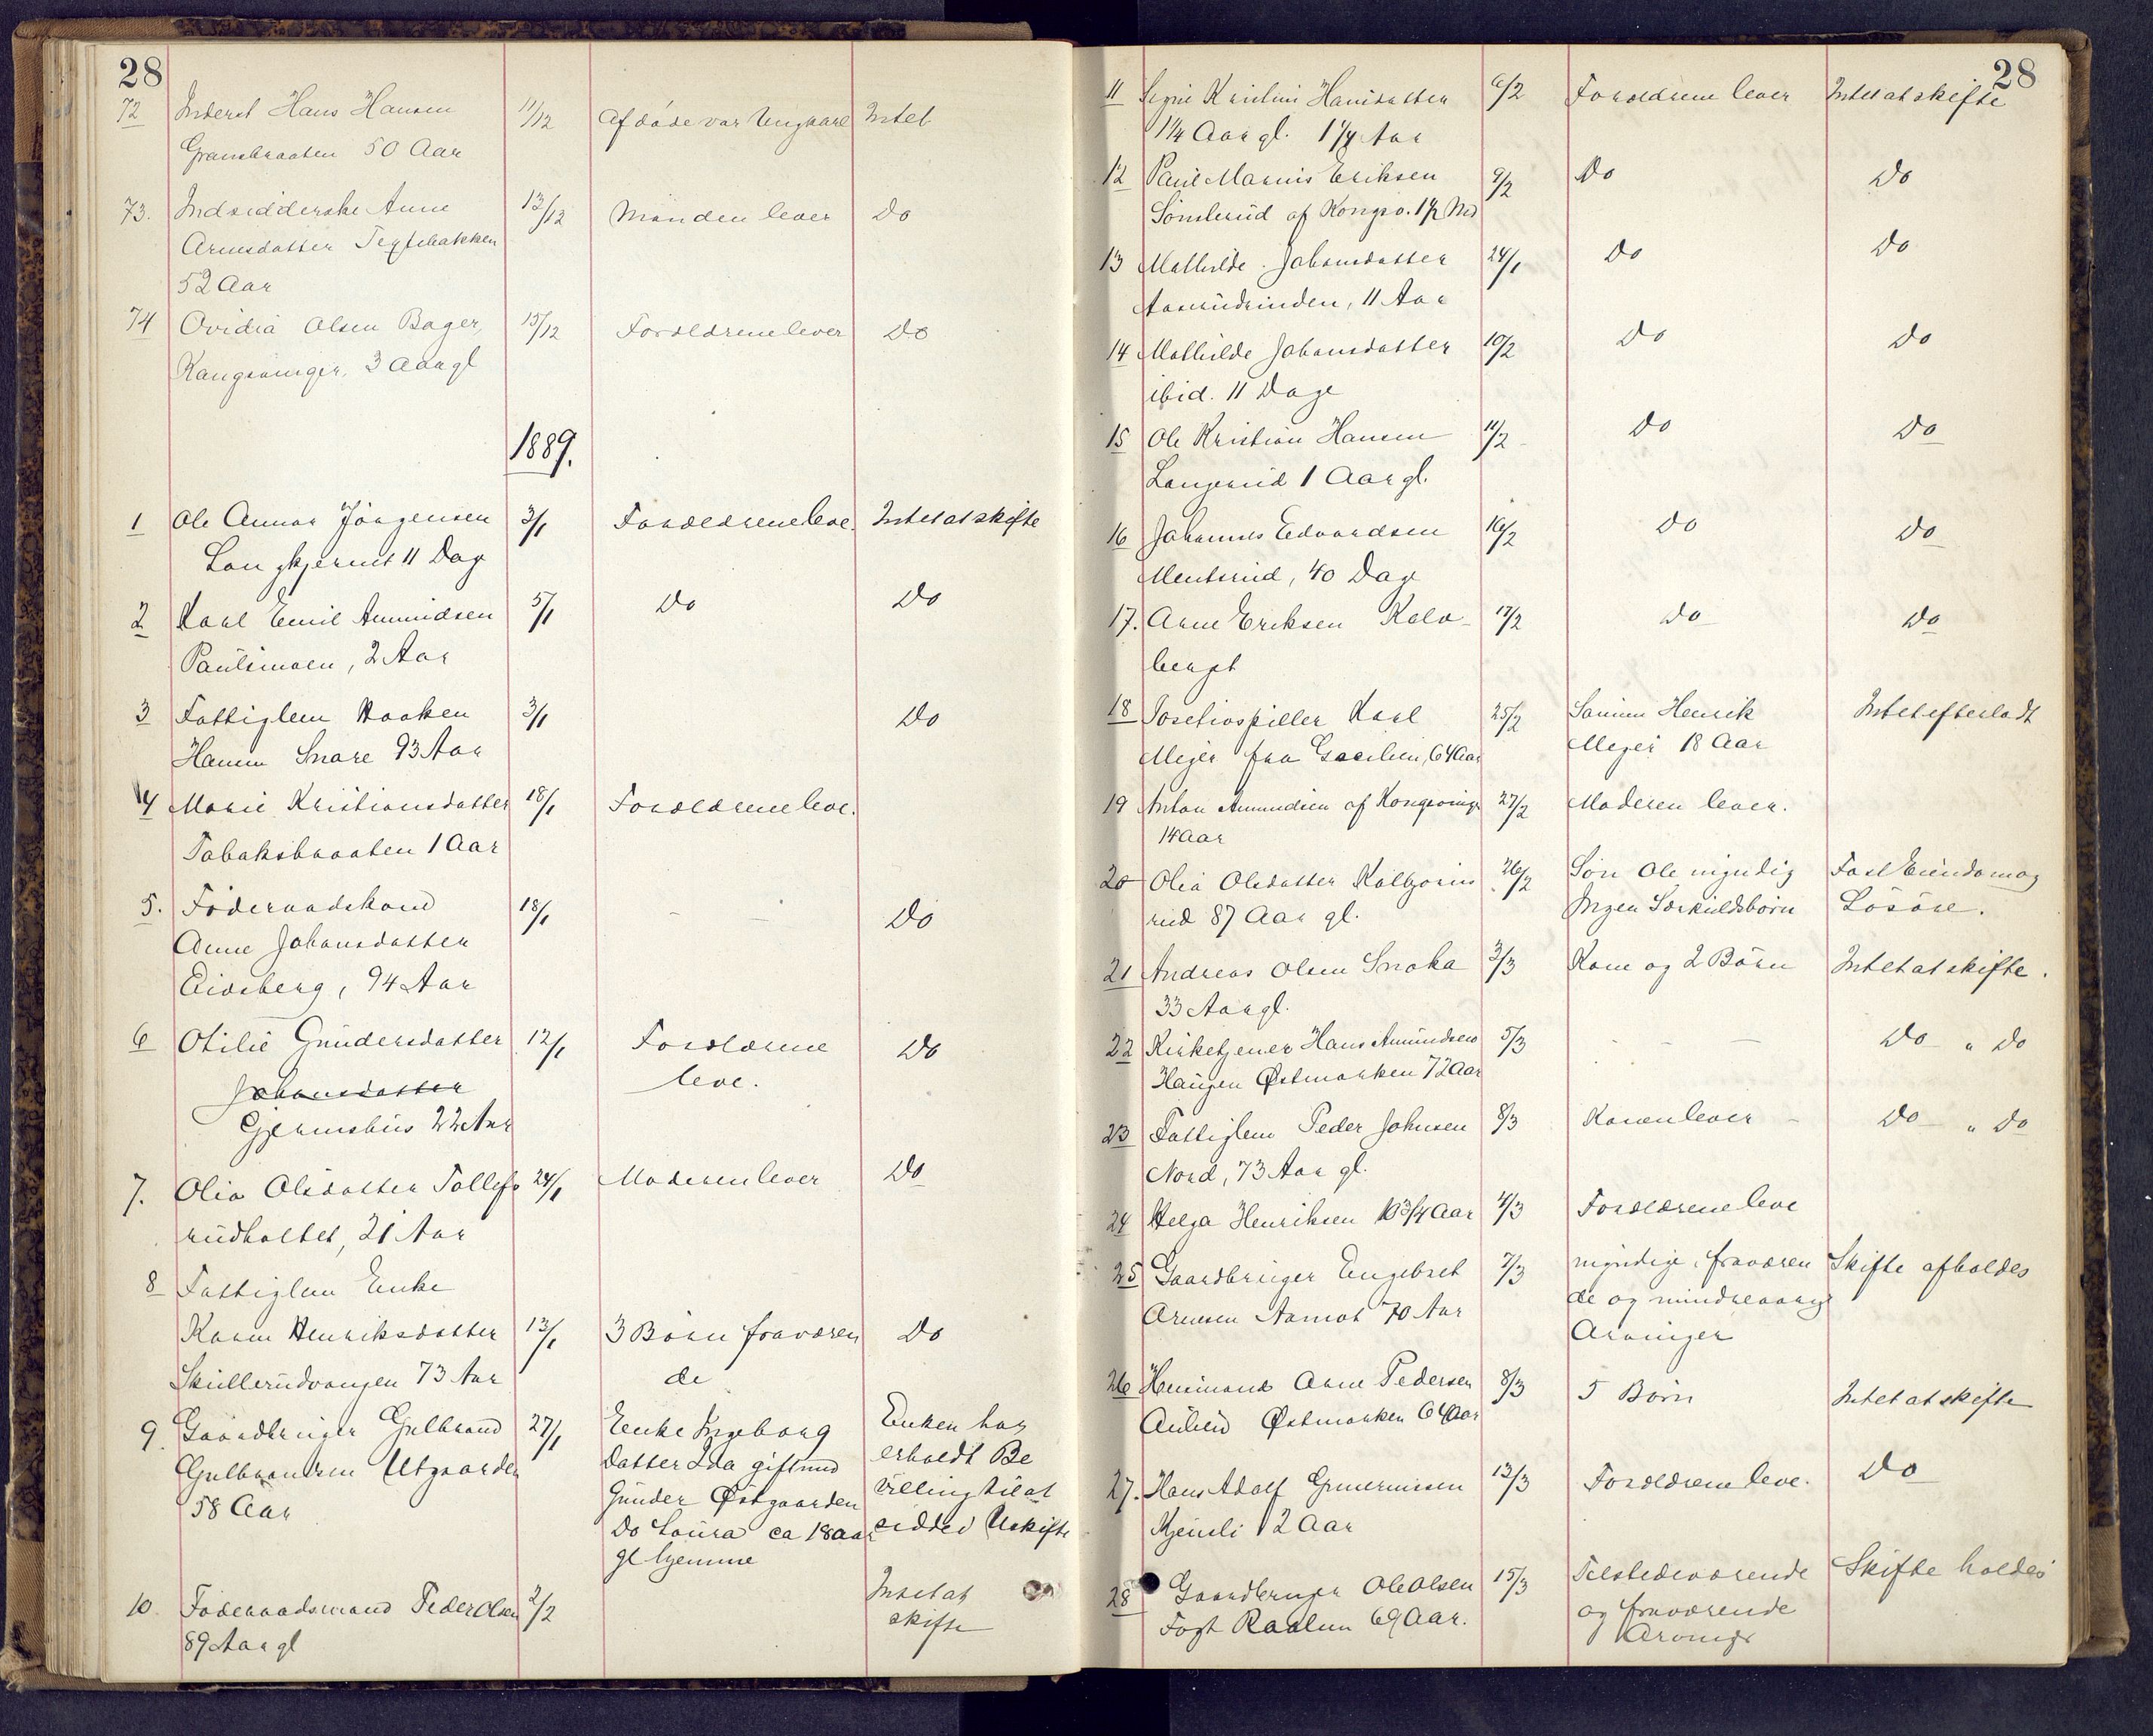 28
72 Inderst Hans Hansen 11/12 Afdøde var Ungkarl Intet
Gransbraaten 50 Aar
73. Indsidderske Anne 13/12 Manden lever Do
Arnesdatter Teglbakken
52 Aar
74 Ovidia Olsen Bager, 15/12 Forældrene lever Do
Kongsvinger, 3 Aar gl
1889.
1 Ole Annar Jørgensen 3/1 Forældrene leve. Intet at skifte
Langkjernet 11 Dage
2 Karl Emil Amundsen 5/1 Do Do
Paulsmoen, 2 Aar
3 Fattiglem Haaken 3/1 Do
Hansen Snare 93 Aar
4 Marie Kristiansdatter 18/1 Forældrene leve.
Tabaksbraaten 1 Aar
5. Føderaadskone 18/1 - - Do
Anne Johansdatter
Eidsberg, 94 Aar
6 Otilie Gundersdatter 12/1 Forældrene Do
Johansdatter leve.
Gjermshus 22 Aar
7. Olia Olsdatter Tollefs 24/1 Moderen lever Do
rudholtet, 21 Aar
8 Fattiglem Enke
Karen Henriksdatter 13/1 3 Børn fraværen Do
Skullerudvangen 73 Aar de
9. Gaardbruger Gulbrand 27/1 Enke Ingeborg Enken har
Gulbrandsen Utgaarden Datter Ida gift med erholdt Be
58 Aar Gunder Østgaarden villing til at
Do Laura ca 18 aar sidde i Uskifte
gl hjemme
10. Føderaadsmand Peder Olsen 2/2 Intet at
89 Aar gl skifte
28
11 Signe Kristine Hansdatter 6/2 Forældrene lever Intet at skifte
1 1/4 Aar gl. 1 1/4 Aar
12 Paul Marius Eriksen 9/2 Do Do
Sønsterud af Kongsv. 1 1/2 Md
13 Mathilde Johansdatter 24/1 Do Do
11 Aar
14 Mathilde Johansdatter 10/2 Do Do
ibid. 11 Dage
15 Ole Kristian Hansen 11/2 Do Do
Langerud 1 Aar gl.
16 Johannes Edvardsen 16/2 Do Do
Menterud, 40 Dage
17. Arne Eriksen Kalv- 17/2 Do Do
berget
18 Positivspiller Karl 25/2 Sønnen Henrik Intet efterladt
Mejer fra 64 Aar Mejer 18 Aar
19 Anton Amundsen af Kongsvinger 27/2 Moderen lever.
14 Aar
20 Olia Olsdatter Kolbjørns 26/2 Søn Ole myndig Fast Eiendom og
rud 87 Aar gl. Ingen Særkuldsbørn Løsøre.
21 Andreas Olsen Snoka 3/3 Kone og 2 Børn Intet at skifte.
33 Aar gl.
22 Kirketjener Hans Amundsen 5/3 - - - Do " Do
Haugen Østmarken 72 Aar
23 Fattiglem Peder Johnsen 8/3 Konen lever - Do " Do
Nord, 73 Aar gl.
24 Helga Henriksen 10 3/4 Aar 4/3 Forældrene leve
25 Gaardbruger Engebret 7/3 myndige, fraværen Skifte afholdes
Arnesen Aamot 70 Aar de og mindreaarige
Arvinger
26 Husmand Arne Pedersen 8/3 5 Børn Intet at skifte
Østmarken 64 Aar
27. Hans Adolf Guneriussen 13/3 Forældrene leve. Do
Kjensli 12 Aar
28 Gaardbruger Ole Olsen 15/3 Tilstedeværende Skifte holdes
Fogt Raalum 69 Aar. og fraværende
Arvinger